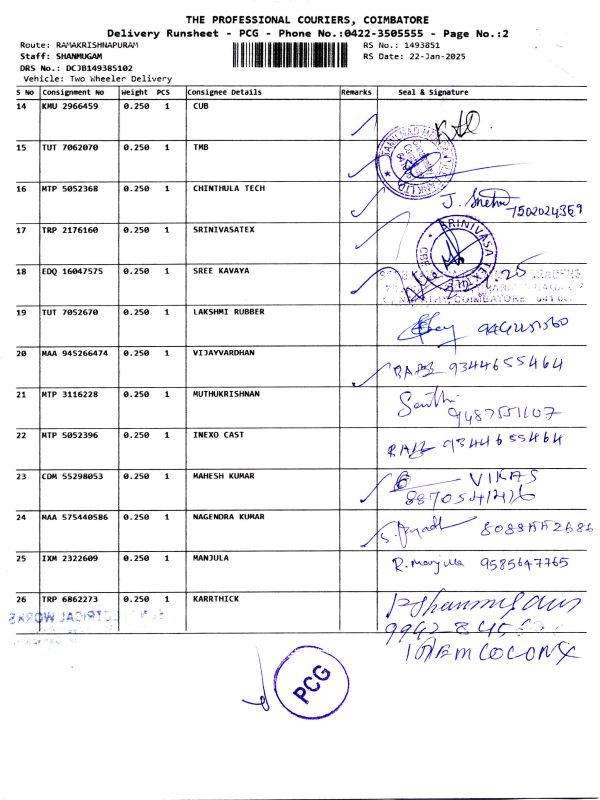 THE PROFESSIONAL COURIERS, COIMBATORE
Delivery Runsheet - PCG - Phone No.:0422-3505555 - Page No.:2
Route: RAMAKRISHNAPURAM RS No.: 1493851
Staff: SHANMUGAM RS Date: 22-Jan-2025
DRS No.: DCJB149385102
Vehicle: Two Wheeler Delivery
S No Consignment No Weight PCS Consignee Details Remarks Seal & Signature
14 KMU 2966459 0.250 1 CUB
15 TUT 7062070 0.250 1 TMB
16 MTP 5052368 0.250 1 CHINTHULA TECH J. 7502024369
17 TRP 2176160 0.250 1 SRINIVASATEX SRINIVASA
18 EDQ 16047575 0.250 1 SREE KAVAYA
COIMBATORE
19 TUT 7052670 0.250 1 LAKSHMI RUBBER
20 MAA 945266474 0.250 1 VIJAYVARDHAN 9344655464
21 MTP 3116228 0.250 1 MUTHUKRISHNAN Santhi
22 MTP 5052396 0.250 1 INEXO CAST 9344655464
23 CDM 55298053 0.250 1 MAHESH KUMAR VIKAS
8870541426
24 MAA 575440586 0.250 1 NAGENDRA KUMAR
25 IXM 2322609 0.250 1 MANJULA R. manjula 9585647765
26 TRP 6862273 0.250 1 KARRTHICK
PCG